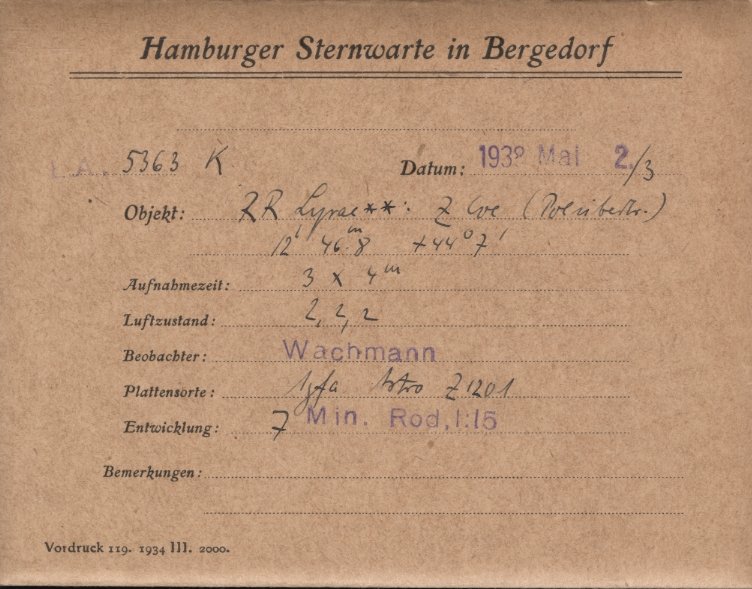 Hamburger Sternwarte in Bergedorf
L.A. 5363 K Datum: 1938 Mai 2./3
Objekt: RR Lyrae**: Z CVe
12ʰ 46.ᵐ8 +44° 7'
Aufnahmezeit: 3 x 4ᵐ
Luftzustand: 2, 2, 2
Beobachter: Wachmann
Plattensorte: Agfa Astro Z 1201
Entwicklung: 7 Min. Rod, 1:15
Bemerkungen:
Vordruck 119. 1934 III. 2000.